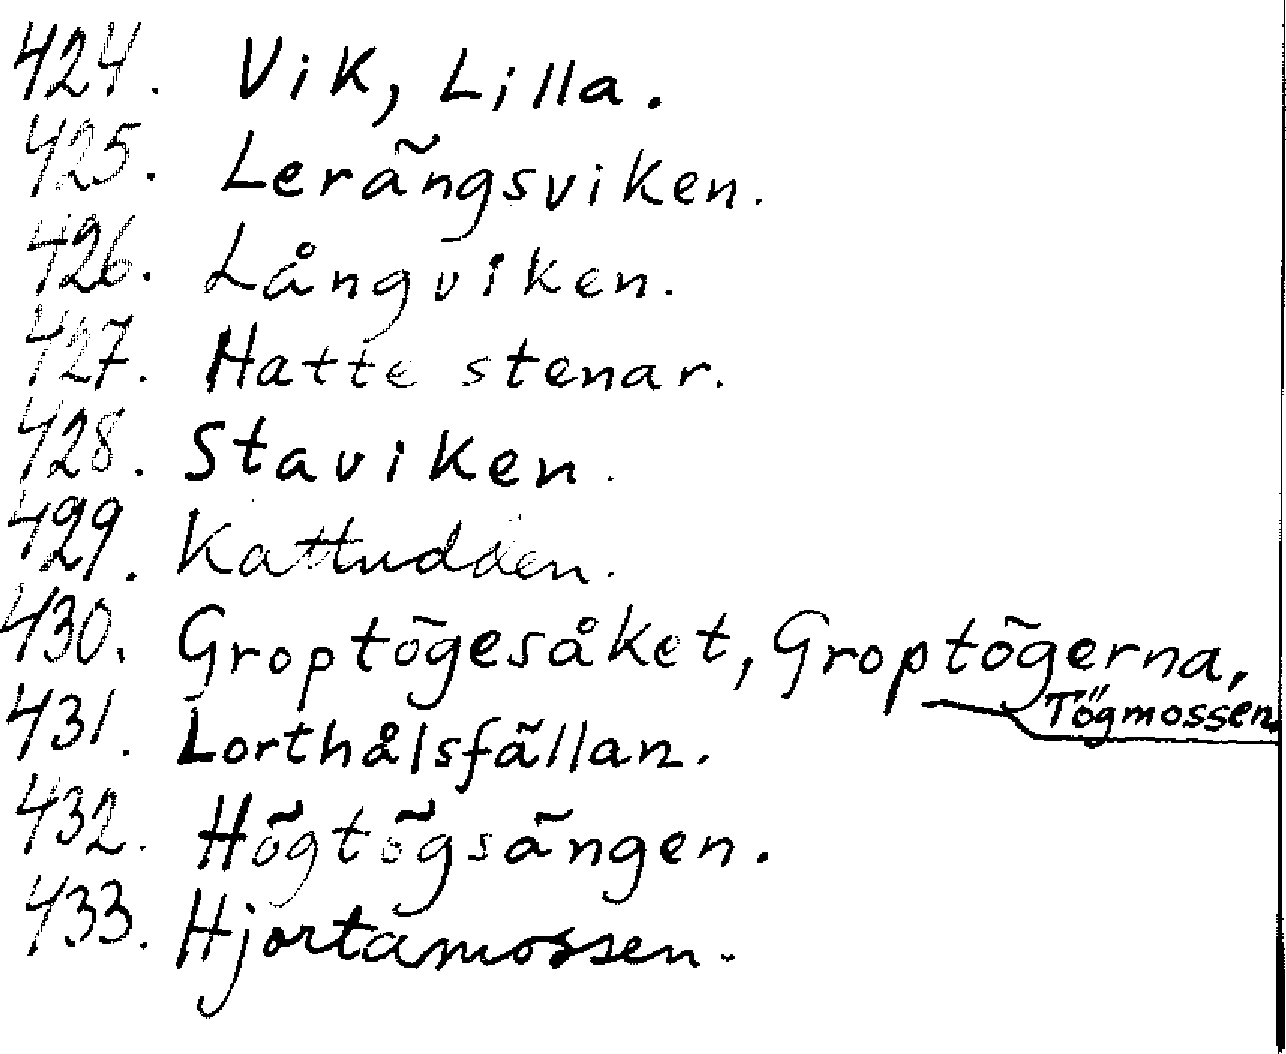 424. Vik, Lilla.
425. Lerängsviken.
426. Långviken.
427. Hatte stenar.
428. Staviken.
429. Kattudden.
430. Groptögesåket, Groptögerna,
Tögmossen.
431. Lorthålsfällan.
432. Högtögsängen.
433. Hjortamossen.